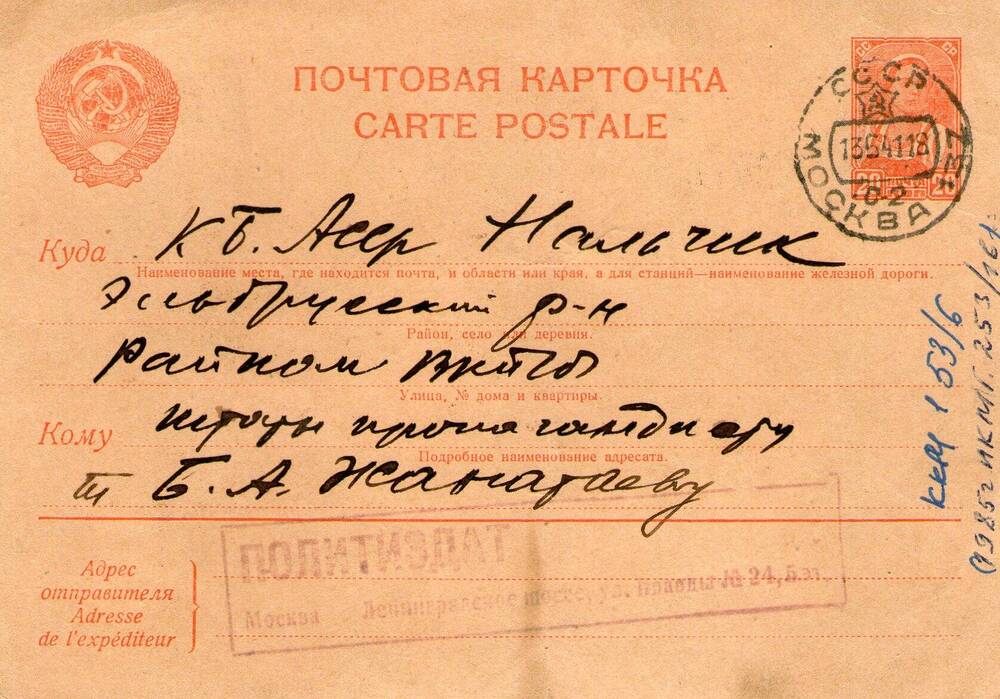 ПОЧТОВАЯ КАРТОЧКА
CARTE POSTALE
СС СР
20 20
СССР
13 5 41 18
МОСКВА
Куда К Б. Асср Нальчик
Наименование места, где находится почта, и области или края, а для станций—наименование железной дороги.
Эльбрусский р-н
Район, село или деревня.
Райком ВКПб
Улица, № дома и квартиры.
Кому штату пропагандисту
Подробное наименование адресата.
т Б. А. Жанатаеву
ПОЛИТИЗДАТ
Москва Ленинградское шоссе, ул. Правды № 24, 5 эт.
Адрес
отправителя
Adresse
de l'expéditeur
ккм 1 53/6
(1985г НКМГ. 253/161)